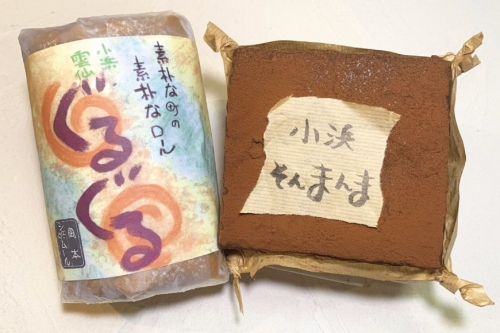 素朴な町の
素朴なロール
小浜
雲仙
ぐる
ぐる
小浜
そんまんま